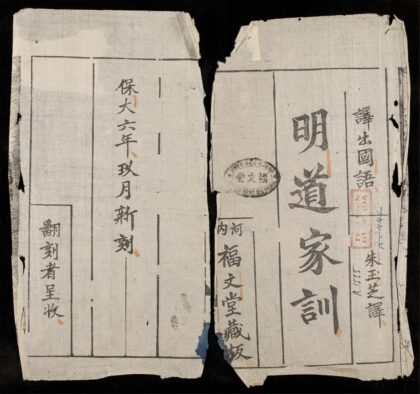 譯出國語
朱玉芝譯
明道家訓
福文堂
河內
福文堂藏板
保大六年玖月新刻
翻刻者呈收